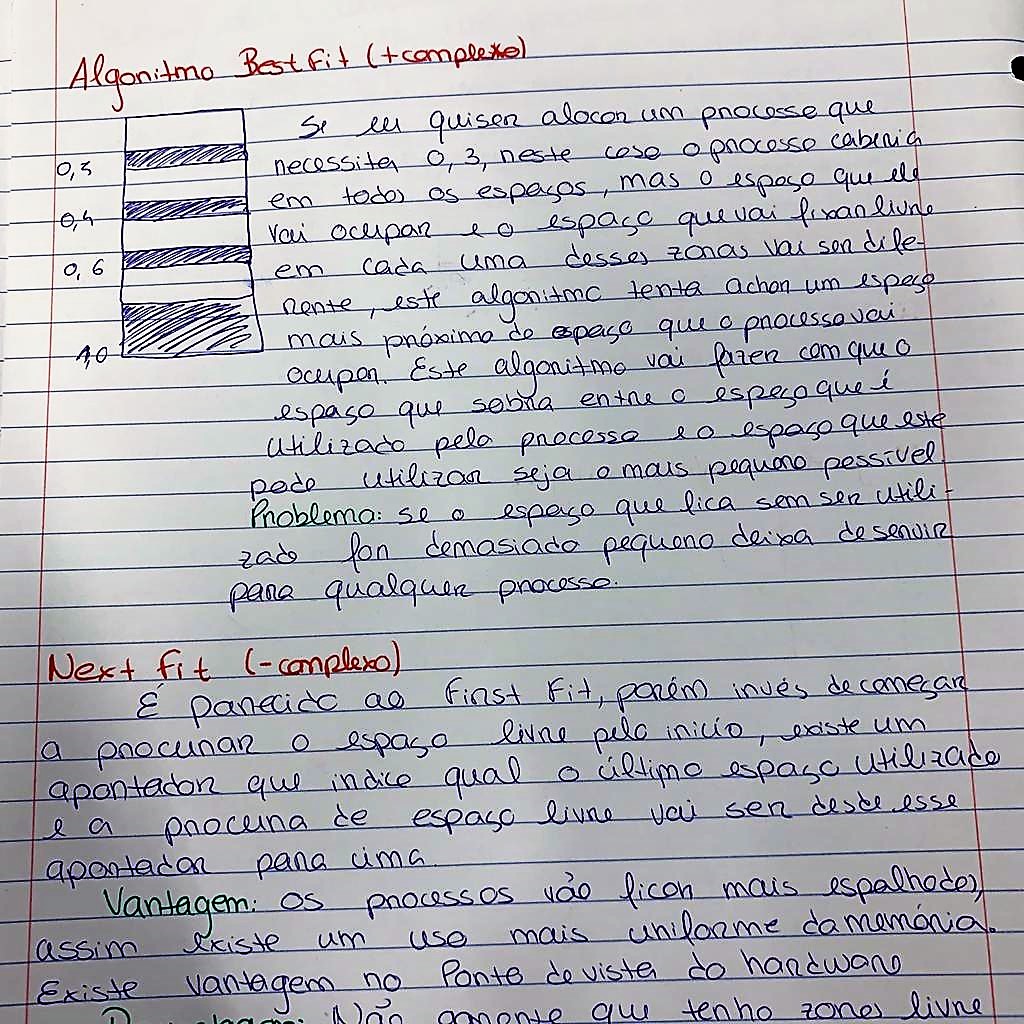 Algoritmo Best Fit (+complexo)
Se eu quiser alocar um processo que
0,3
necessita 0,3, neste caso o processo caberia
em todos os espaços, mas o espaço que ele
0,4
vai ocupar e o espaço que vai ficar livre
0,6
em cada uma desses zonas vai ser dife-
rente, este algoritmo tenta achar um espaço
mais próximo do espaço que o processo vai
1,0
ocupar. Este algoritmo vai fazer com que o
espaço que sobra entre o espaço que é
utilizado pelo processo e o espaço que este
pode utilizar seja o mais pequeno possível.
Problema: se o espaço que fica sem ser utili-
zado for demasiado pequeno deixa de servir
para qualquer processo.
Next Fit (-complexo)
É parecido ao First Fit, porém invés de começar
a procurar o espaço livre pelo inicío, existe um
apontador que indica qual o último espaço utilizado
e a procura de espaço livre vai ser desde esse
apontador para cima.
Vantagem: os processos vão ficar mais espalhados,
assim existe um uso mais uniforme da memória.
Existe vantagem no Ponto de vista do hardware
Não garante que tenho zonas livre